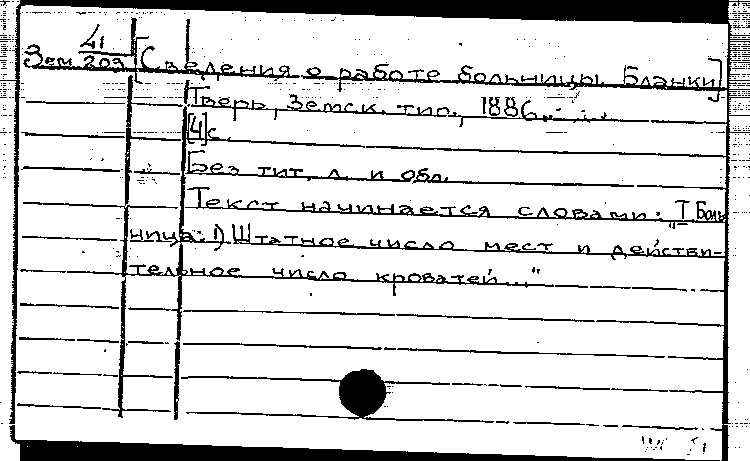 41
Зем 203
[Сведения о работе больницы. Бланки]
Тверь, Земск. тип., 1886.
[4]с.
Без тит. л. и обл.
Текст начинается словами: „I Боль
ница: 1) Штатное число мест и действи-
тельное число кроватей..."